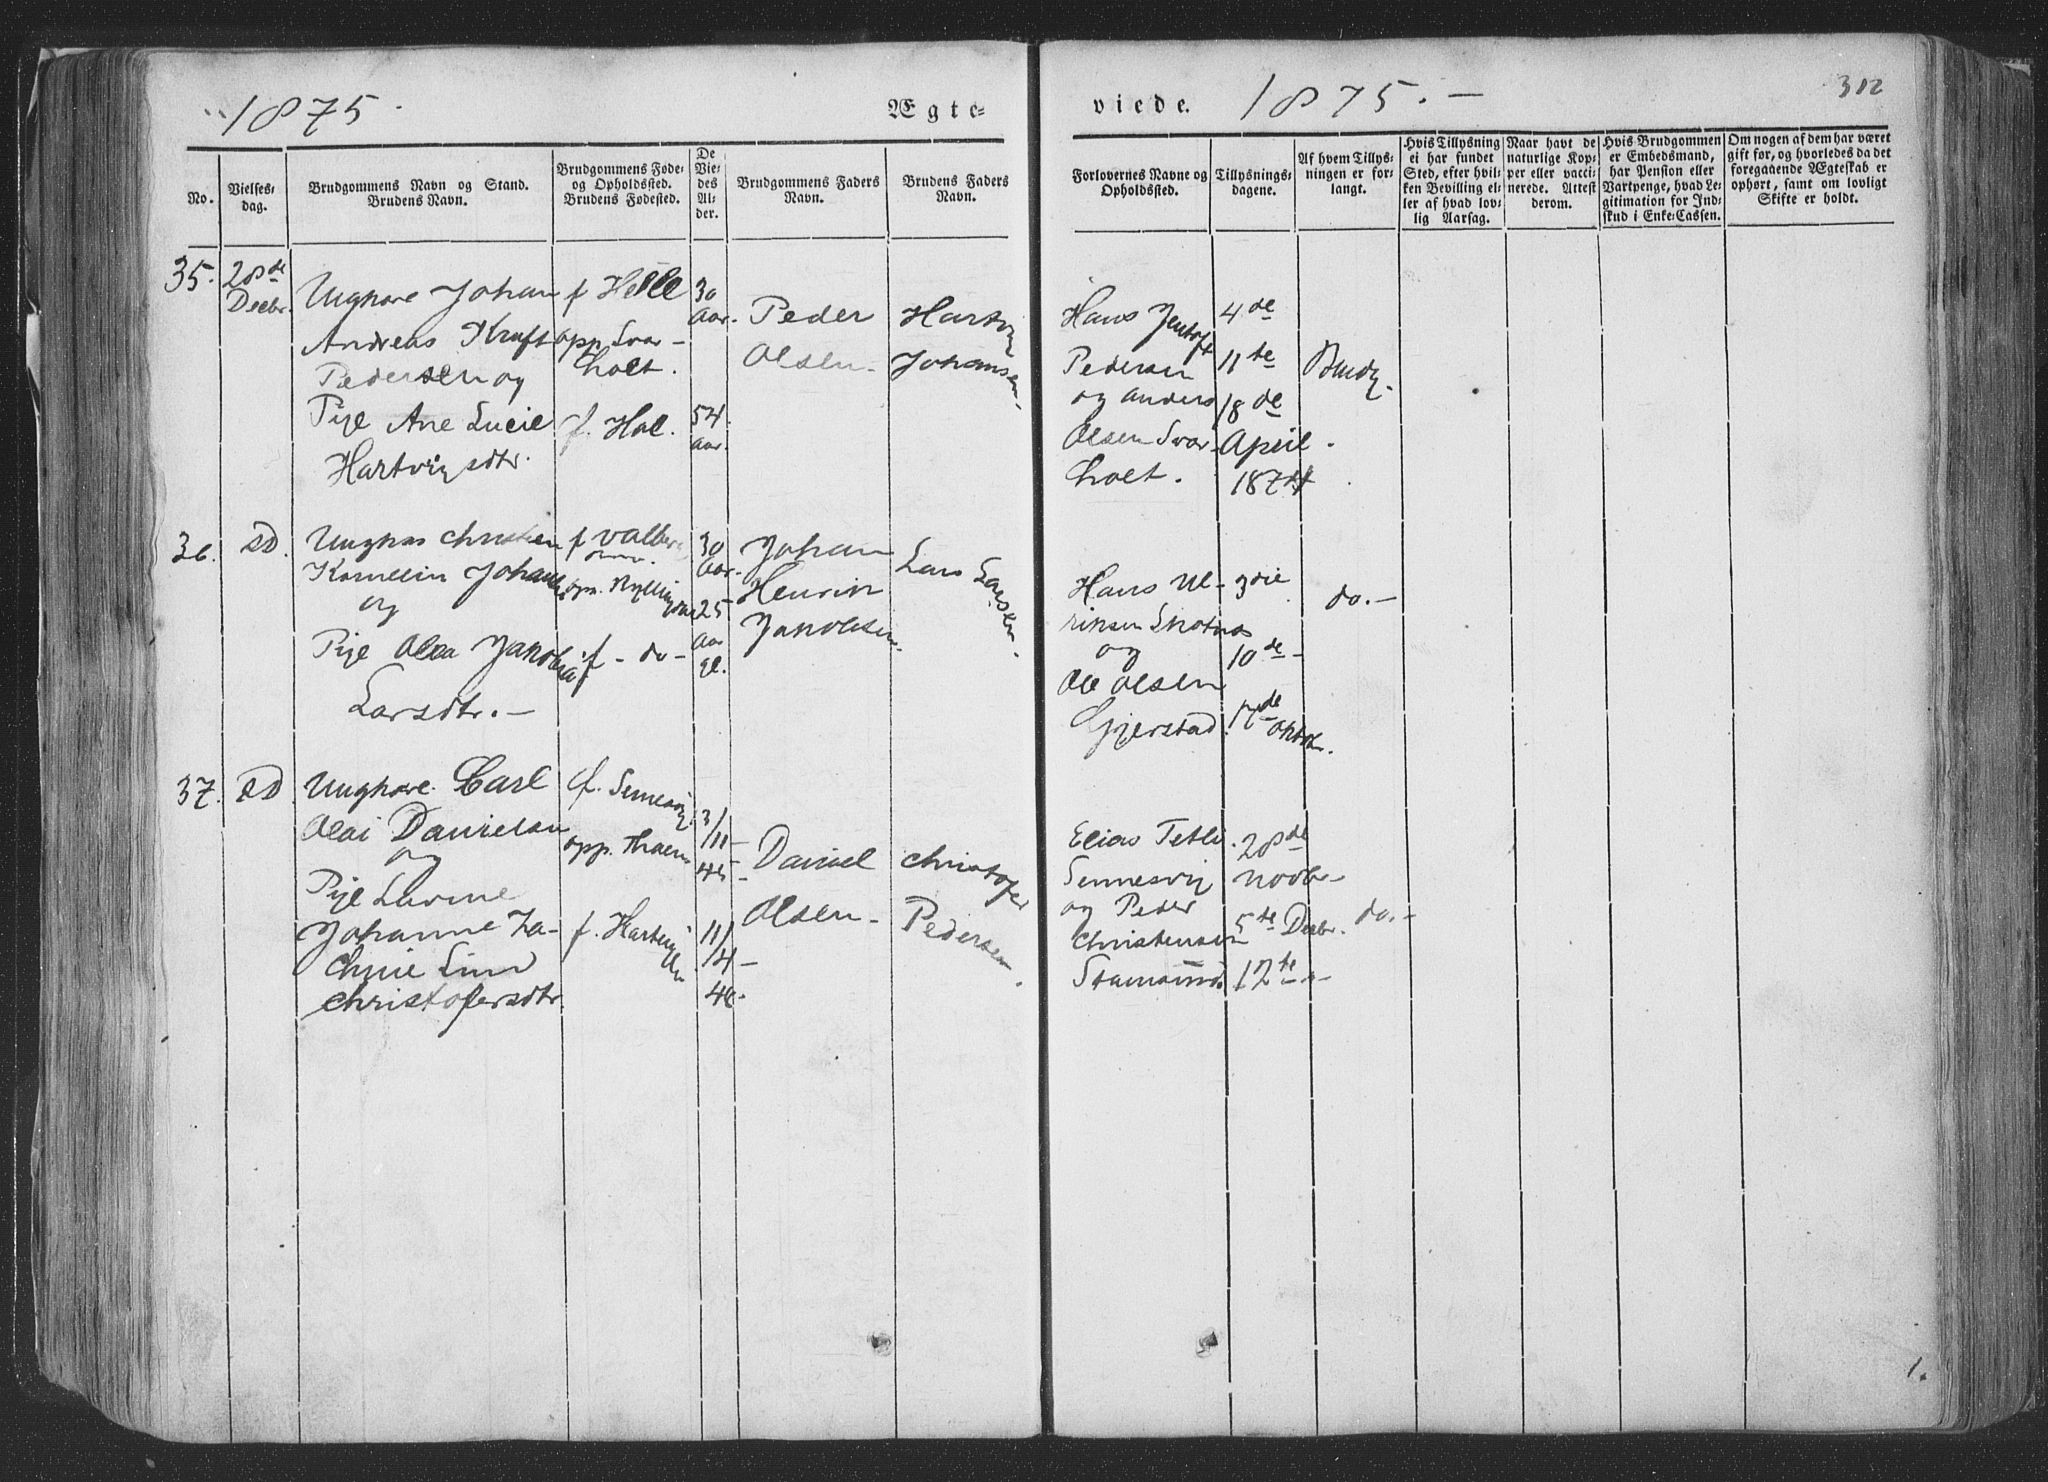 1875.
Ægte-
viede.
1875. —
312
No.
Vielses-
dag.
Brudgommens Navn og Stand.
Brudens Navn.
Brudgommens Føde-
og Opholdssted.
Brudens Fødested.
De
Vie-
des
Al-
der.
Brudgommens Faders
Navn.
Brudens Faders
Navn.
Forlovernes Navne og
Opholdssted.
Tillysnings-
dagene.
Af hvem Tillys-
ningen er for-
langt.
Hvis Tillysning
ei har fundet
Sted, efter hvil-
ken Bevilling el-
ler af hvad lov-
lig Aarsag.
Naar havt de
naturlige Kop-
per eller vacci-
nerede. Attest
derom.
Hvis Brudgommen
er Embedsmand,
har Pension eller
Vartpenge, hvad Le-
gitimation for Ind-
skud i Enke-Cassen.
Om nogen af dem har været
gift før, og hvorledes da det
foregaaende Ægteskab er
ophørt, samt om lovligt
Skifte er holdt.
35.
28de
Decbr.
Ungkare Johan
Andreas Kraft
Pedersen og
Pige Ane Lucie
Hartvigsdtr.
f Helle
opp Svar-
holt.
f. Hol.
30
Aar.
54
Aar.
Peder
Olsen.
Hartvig
Johansen.
Hans Jentoft
Pedersen
og Anders
Olsen Svar-
holt.
4de
11te
18de
April
1874
Brudg.
36.
SD.
Ungkar Christian
Kornelius Johansen
og
Pige Olea Jakobia
Larsdtr. —
f Valberg
opp.
f - do -
30
Aar.
25
Aar
gl.
Johan
Henrik
Jakobsen.
Lars Larsen.
Hans Ul-
riksen Skotnes
og
Ole Olsen
Gjerstad.
3die
10de -
17de Oktobr.
do. —
37.
SD.
Ungkare. Carl
Olai Danielsen
og
Pige Lavine
Johanne Za-
Lind
Christofersdtr.
f. Sennesvig
opp.
f.
3/11 -
45 -
11/4 -
46 -
Daniel
Olsen -
Christofer
Pedersen.
Elias
Sennesvig
og Peder
Christensen
Stamsund.
28de
Novbr -
5te Decbr.
12te -
do. -
1.